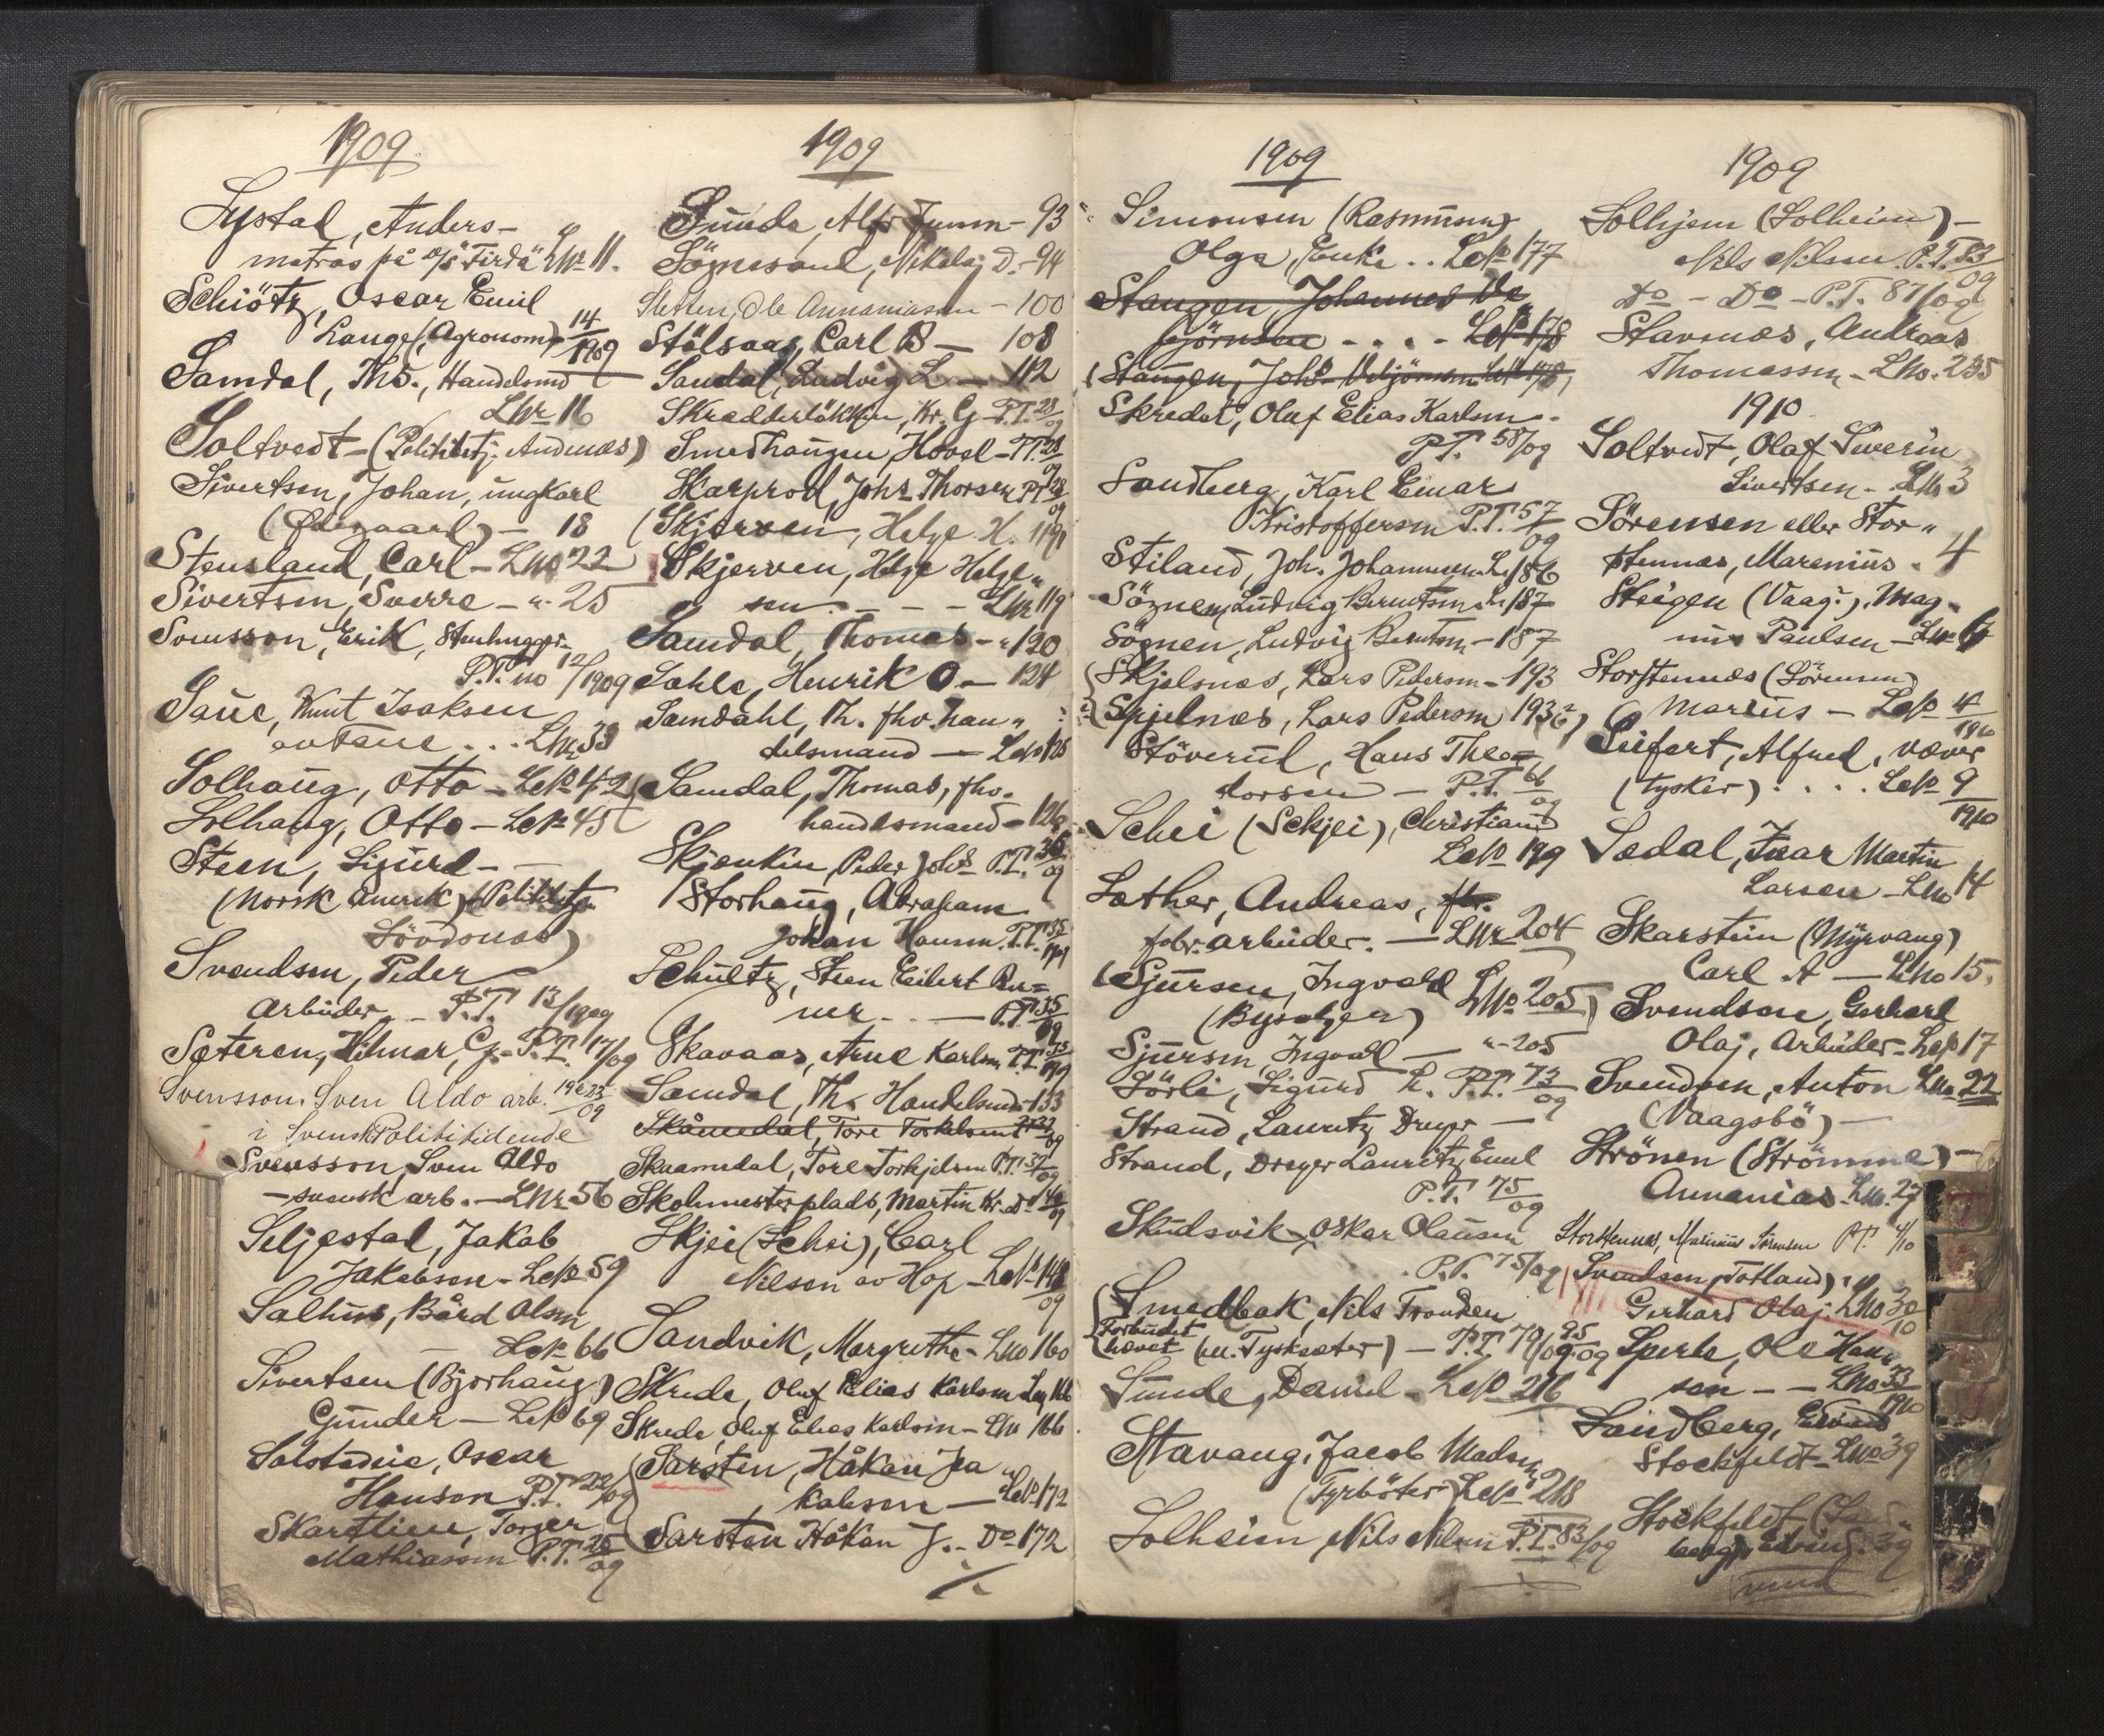 1909
Systad, Anders -
matros på d/s Firda LNr 11.
Schiötz, Oscar Emil
Lange, (Agronom) 14/1909
Samdal, Ths., Handelsmd
LNr 16
Soltvedt - (Politibetj. Andenæs)
Sivertsen, Johan, ungkarl
(Ødegaard) - 18
Stensland, Carl - LNo 22
Sivertsen, Sverre - " 25
Svensson, Erik, Stenhugger
P.T. no 12/1909
Saue, Knut Isaksen
LNr 33
Solhaug, Otto - LNo 42
Solhaug, Otto - LNo 45
Steen, Sigurd -
(Norsk Amerik) (Politibetj.
Svendsen, Peder
Arbeider - P.T. 13/1909
Sæteren, Hilmar, G. P.T. 17/09
Svensson, Sven Aldo arb. 19 & 23/09
i Svensk Polititidende
Svensson, Sven Aldo
- svensk arb. - LNr 56
Seljestad, Jakob
Jakobsen - LNo 59
Salhus, Bård Olsen
LNo 66
Sivertsen (Bjorhaug)
Gunder - LNo 69
Oscar
Hansen P.T. 22/09
Skartlien, Torger
Mathiassen P.T. 26/09
1909
Sunde, Alfr - 93
Sögnesand, Nikolaj D. - 94
Sletten, Ole Annaniassen - 100
Stölsaas, Carl B - 108
Sandal, Ludvig L - 112
Skredderløkken, Kr. G - P.T. 28/09
Smedhaugen, Hovel - P.T. 28/09
Skarprod, Johs Thorsen P.T. 28/09
(Skjerven, Helge H. 119)
Skjerven, Helge Helge"
sen - - - LNr 119
Samdal, Thomas - " 120
Sahle, Henrik O. - 124
Samdahl, Th. fhv. han"
delsmand - LNo 126
Samdal, Thomas, fhv.
handelsmand - 126
Skjenken, Peder Johs P.T.
Storhaug, Abraham
Johan Hansen. P.T. 35/1909
Schultz, Steen Eilert Rei=
ner - - P.T. 35/09
Skavaas, Arne Karlsen P.T. 35/1909
Samdal, Th. Handelsmd. 133
Skåmedal, Tore Torkelsen P.T. 37/09
Skaamedal, Tore Torkjelsen P.T. 37/09
Skolmesterplads, Martin Kr. D 40/09
Skjei (Schei), Carl
Nilsen av Hop - LNo 148/09
Sandvik, Margrethe - LNo 160
Skrede, Oluf Elias Karlsen LNo 166
Skrede, Oluf Elias Karlsen - LNo 166
(Sarsten, Håkon Ja"
kobsen - LNo 172
Sarsten Håkon J. - Do 172
1909
Simonsen (Rasmussen)
Olga, Enke .. LNo 177
Stangen, Johannes Ve
björnsen . . . . LNo 178
(Stangen, Johs Vebjörnsen LNo 178)
Skredet, Oluf Elias Karlsen -
P.T. 58/09
Sandberg, Karl Einar
Kristoffersen P.T. 57/09
Stiland, Joh. Johannesen L. 186
Sögnen, Ludvig Berntsen L. 187
Sögnen, Ludvig Berntsen - 187
(Skjelsnæs, Lars Pedersen - 193
Spjelnes, Lars Pedersen 193)
Stöverud, Hans Theo=
dorsen - P.T. 66/09
Schei (Schjei), Christian
LNo 199
Sather, Andreas,
fabr. arbeider. - LNr 204
(Sjursen, Ingvald LNo 205)
Sjursen, Ingvald - " 205
Sörli, Sigurd L. P.T. 73/09
Strand, Lauritz Dreyer -
Strand, Dreyer Lauritz Emil
P.T. 75/09
Skudsvik, Oskar Olausen
P.T. 75/09
(Smedbak, Nils Tronden
Forbudet
hævet (se. Tysksæter) - P.T. 79/09 95/09
Sunde, Daniel - LNo 216
Stavang, Jacob Madsen
(Fyrböter) LNo 218
Solheim, Nils Nilsen P.T. 83/09
1909
Solhjem (Solheim) -
Nils Nilsen P.T. 83/09
Do - Do - P.T. 87/09
Stavnæs, Andreas
Thomassen - LNo. 235
1910
Soltvedt, Olaf Severin
Sivertsen - LNo 3
Sörensen eller Stor"
stennæs, Marenius - 4
Steigen (Vaag.), Mag"
nus Paulsen - LNo 6
Storstennæs (Sörensen)
Marius - LNo 4/1910
Seifert, Alfred, væver
(tysker) . . . . LNo 9/1910
Sædal, Ivar Martin
Larsen - LNo 14
Skarstein (Myrvang)
Carl A - LNo 15.
Svendsen, Gerhard
Olaj, Arbeider - LNo 17
Svendsen, Anton LNo 22
(Vaagsbö) -
Strönen (Strömme) -
Annanias - LNo. 27
Storstennes, Marinius Sörensen P.T. 4/10
Svendsen (Totland)
Gerhard Olaj. LNo 30/10
Sperle, Ole Han"
sen - - LNo 33/1910
Sandberg, Edvind
Stockfeldt - LNo 39
Stockfeldt (Sand
berg), Edvind. 39
vend